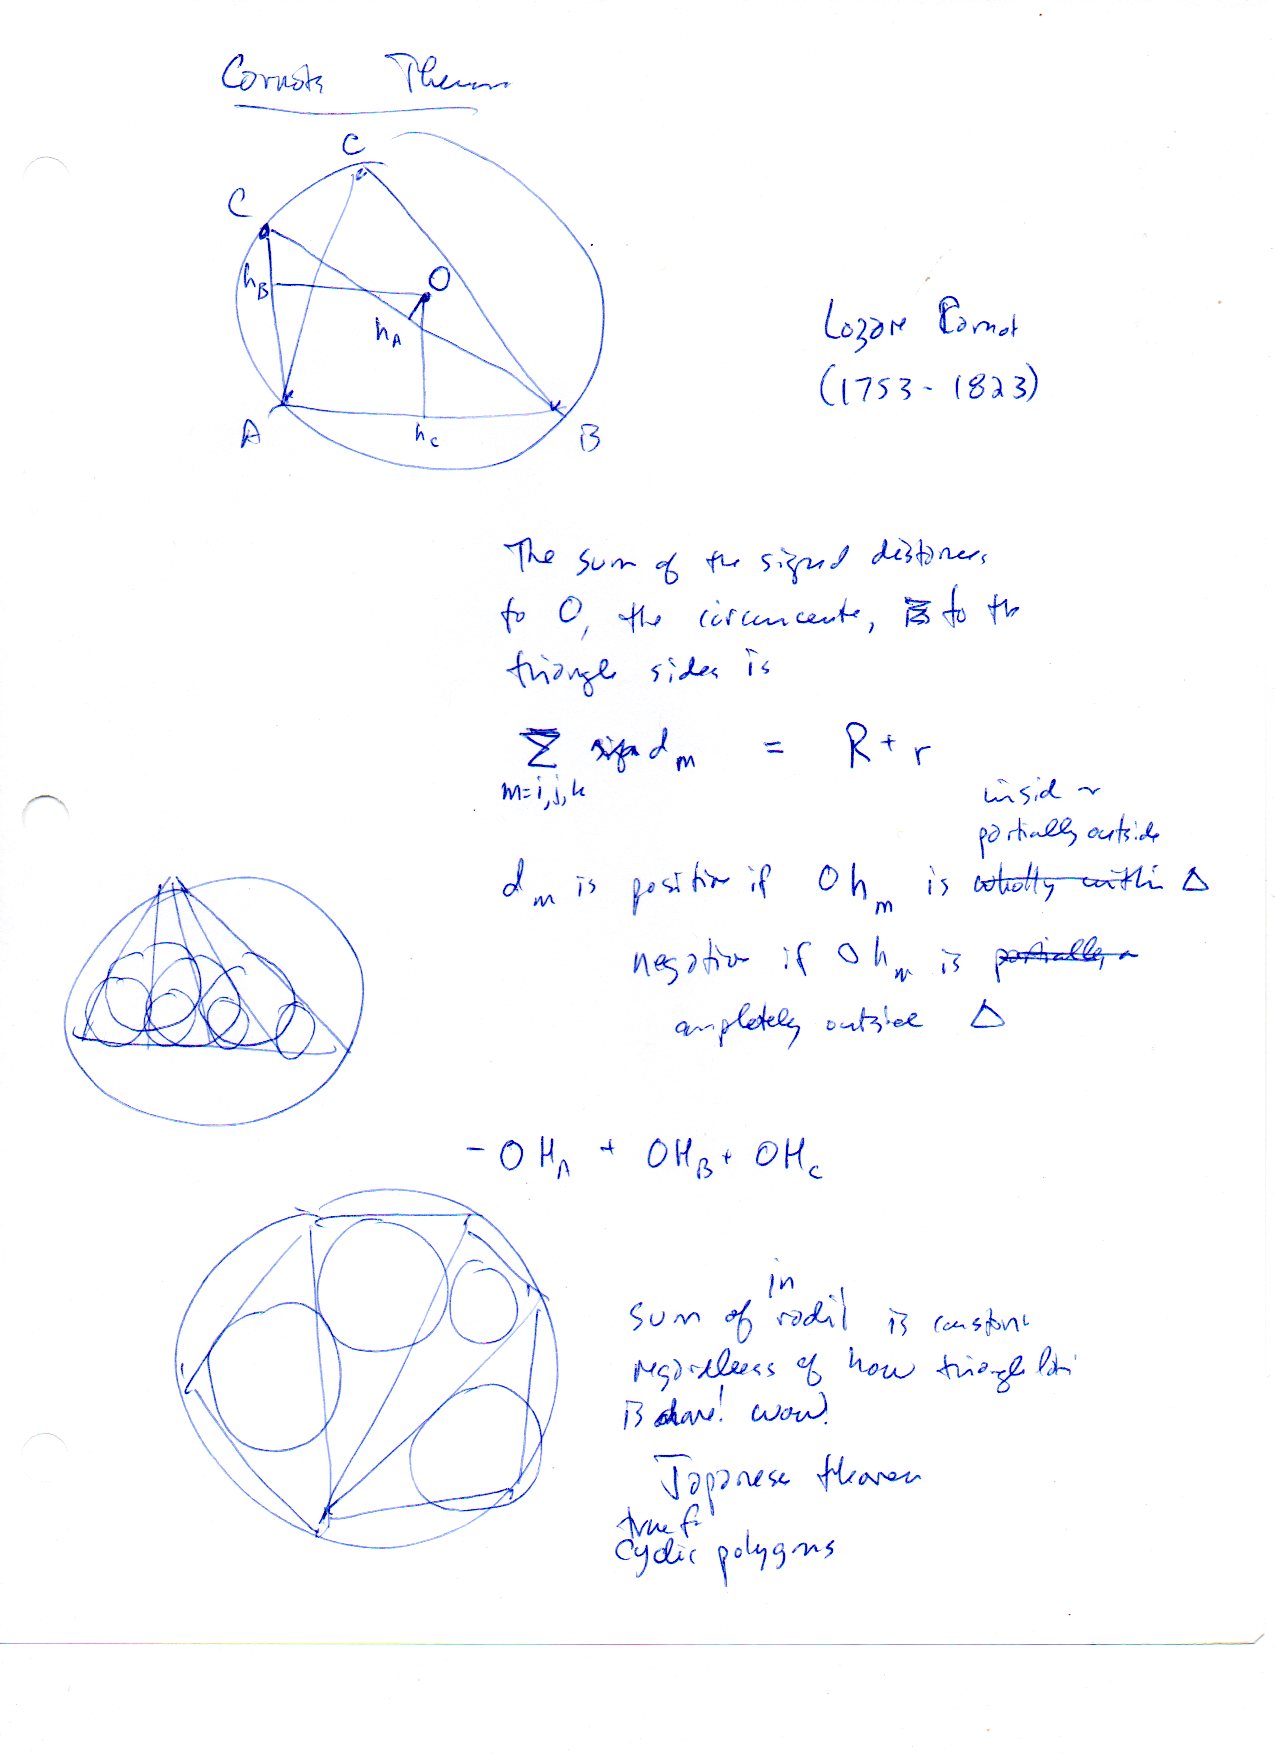 Carnots Theorem
C
C
h_B
O
h_A
A
h_c
B
Lazare Carnot
(1753 - 1823)
The sum of the signed distances
to O, the circumcente, to the
triangle sides is
Σ d_m = R + r
m=i,j,k
inside or
partially outside
d_m is positive if Oh_m is wholly within Δ
negative if Oh_m is partially or
completely outside Δ
- OH_A + OH_B + OH_C
in
sum of radii is constant
regardless of how triangulation
is done! wow!
Japanese theorem
true for
cyclic polygons